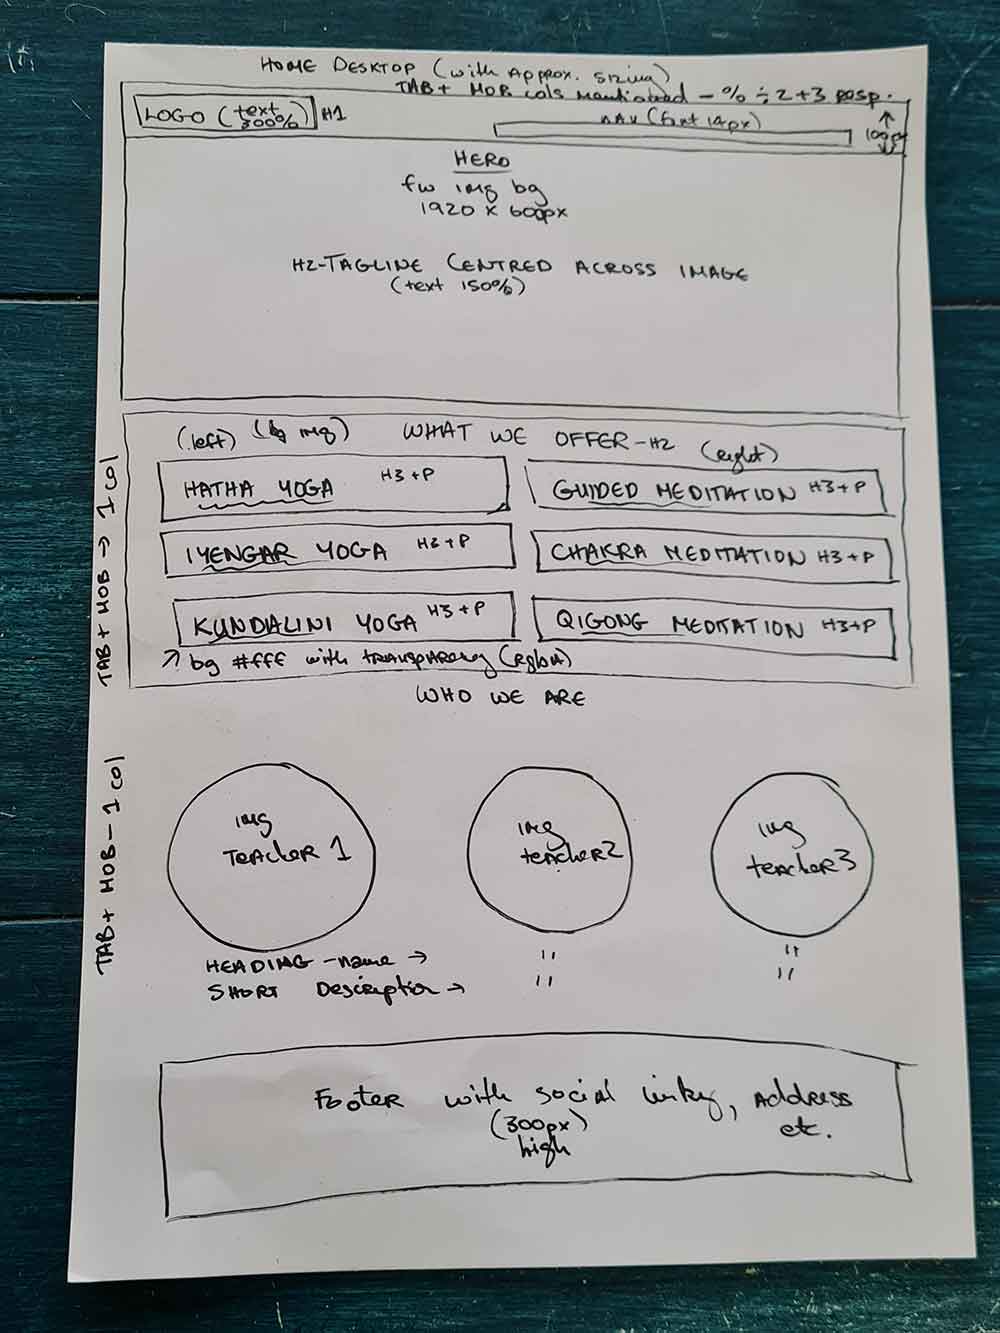 HOME DESKTOP (with Approx. sizing)
TAB + MOB cols mentioned - % ÷ 2 + 3 resp.
LOGO (text 300%) H1
NAV (font 14px)
100px
HERO
fw img bg
1920 x 600px
H2-TAGLINE CENTRED ACROSS IMAGE
(text 150%)
TAB + MOB → 1 col
(left) (bg img) WHAT WE OFFER - H2 (right)
HATHA YOGA H3 + P
GUIDED MEDITATION H3 + P
IYENGAR YOGA H3 + P
CHAKRA MEDITATION H3 + P
KUNDALINI YOGA H3 + P
QIGONG MEDITATION H3 + P
↗ bg #fff with transparency (rgba)
WHO WE ARE
TAB + MOB - 1 col
img
TEACHER 1
img
teacher 2
img
teacher 3
HEADING - name → " "
SHORT Description → " "
Footer with social links, ADDRESS
(300px) etc.
high